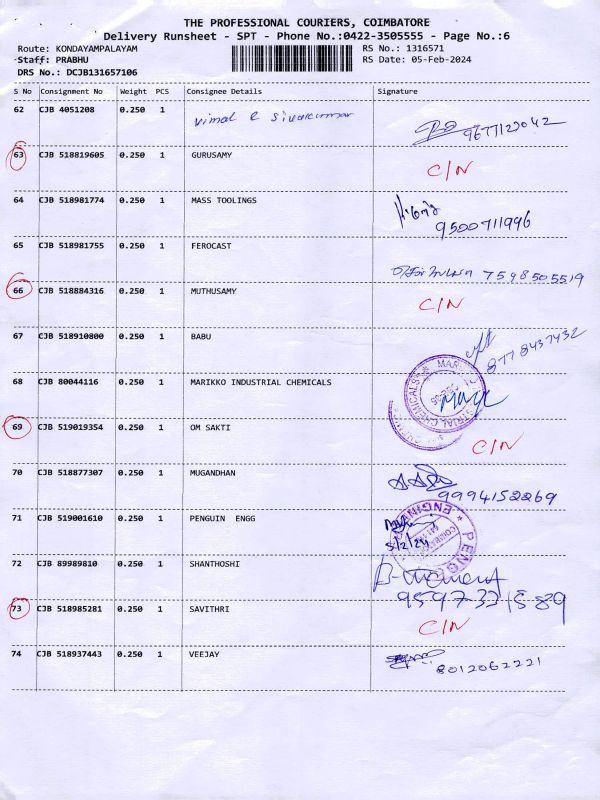 THE PROFESSIONAL COURIERS, COIMBATORE
Delivery Runsheet - SPT - Phone No.:0422-3505555 - Page No.:6
Route: KONDAYAMPALAYAM RS No.: 1316571
Staff: PRABHU RS Date: 05-Feb-2024
DRS No.: DCJB131657106
S No Consignment No Weight PCS Consignee Details Signature
62 CJB 4051208 0.250 1 Vimal & Sivakumar 9677122042
63 CJB 518819605 0.250 1 GURUSAMY C/N
64 CJB 518981774 0.250 1 MASS TOOLINGS
9500711996
65 CJB 518981755 0.250 1 FEROCAST 7598505519
66 CJB 518884316 0.250 1 MUTHUSAMY C/N
67 CJB 518910800 0.250 1 BABU 8778437432
68 CJB 80044116 0.250 1 MARIKKO INDUSTRIAL CHEMICALS
69 CJB 519019354 0.250 1 OM SAKTI C/N
70 CJB 518877307 0.250 1 MUGANDHAN 9994152269
71 CJB 519001610 0.250 1 PENGUIN ENGG 5/2/24
72 CJB 89989810 0.250 1 SHANTHOSHI
9597321589
73 CJB 518985281 0.250 1 SAVITHRI C/N
74 CJB 518937443 0.250 1 VEEJAY 8012062221